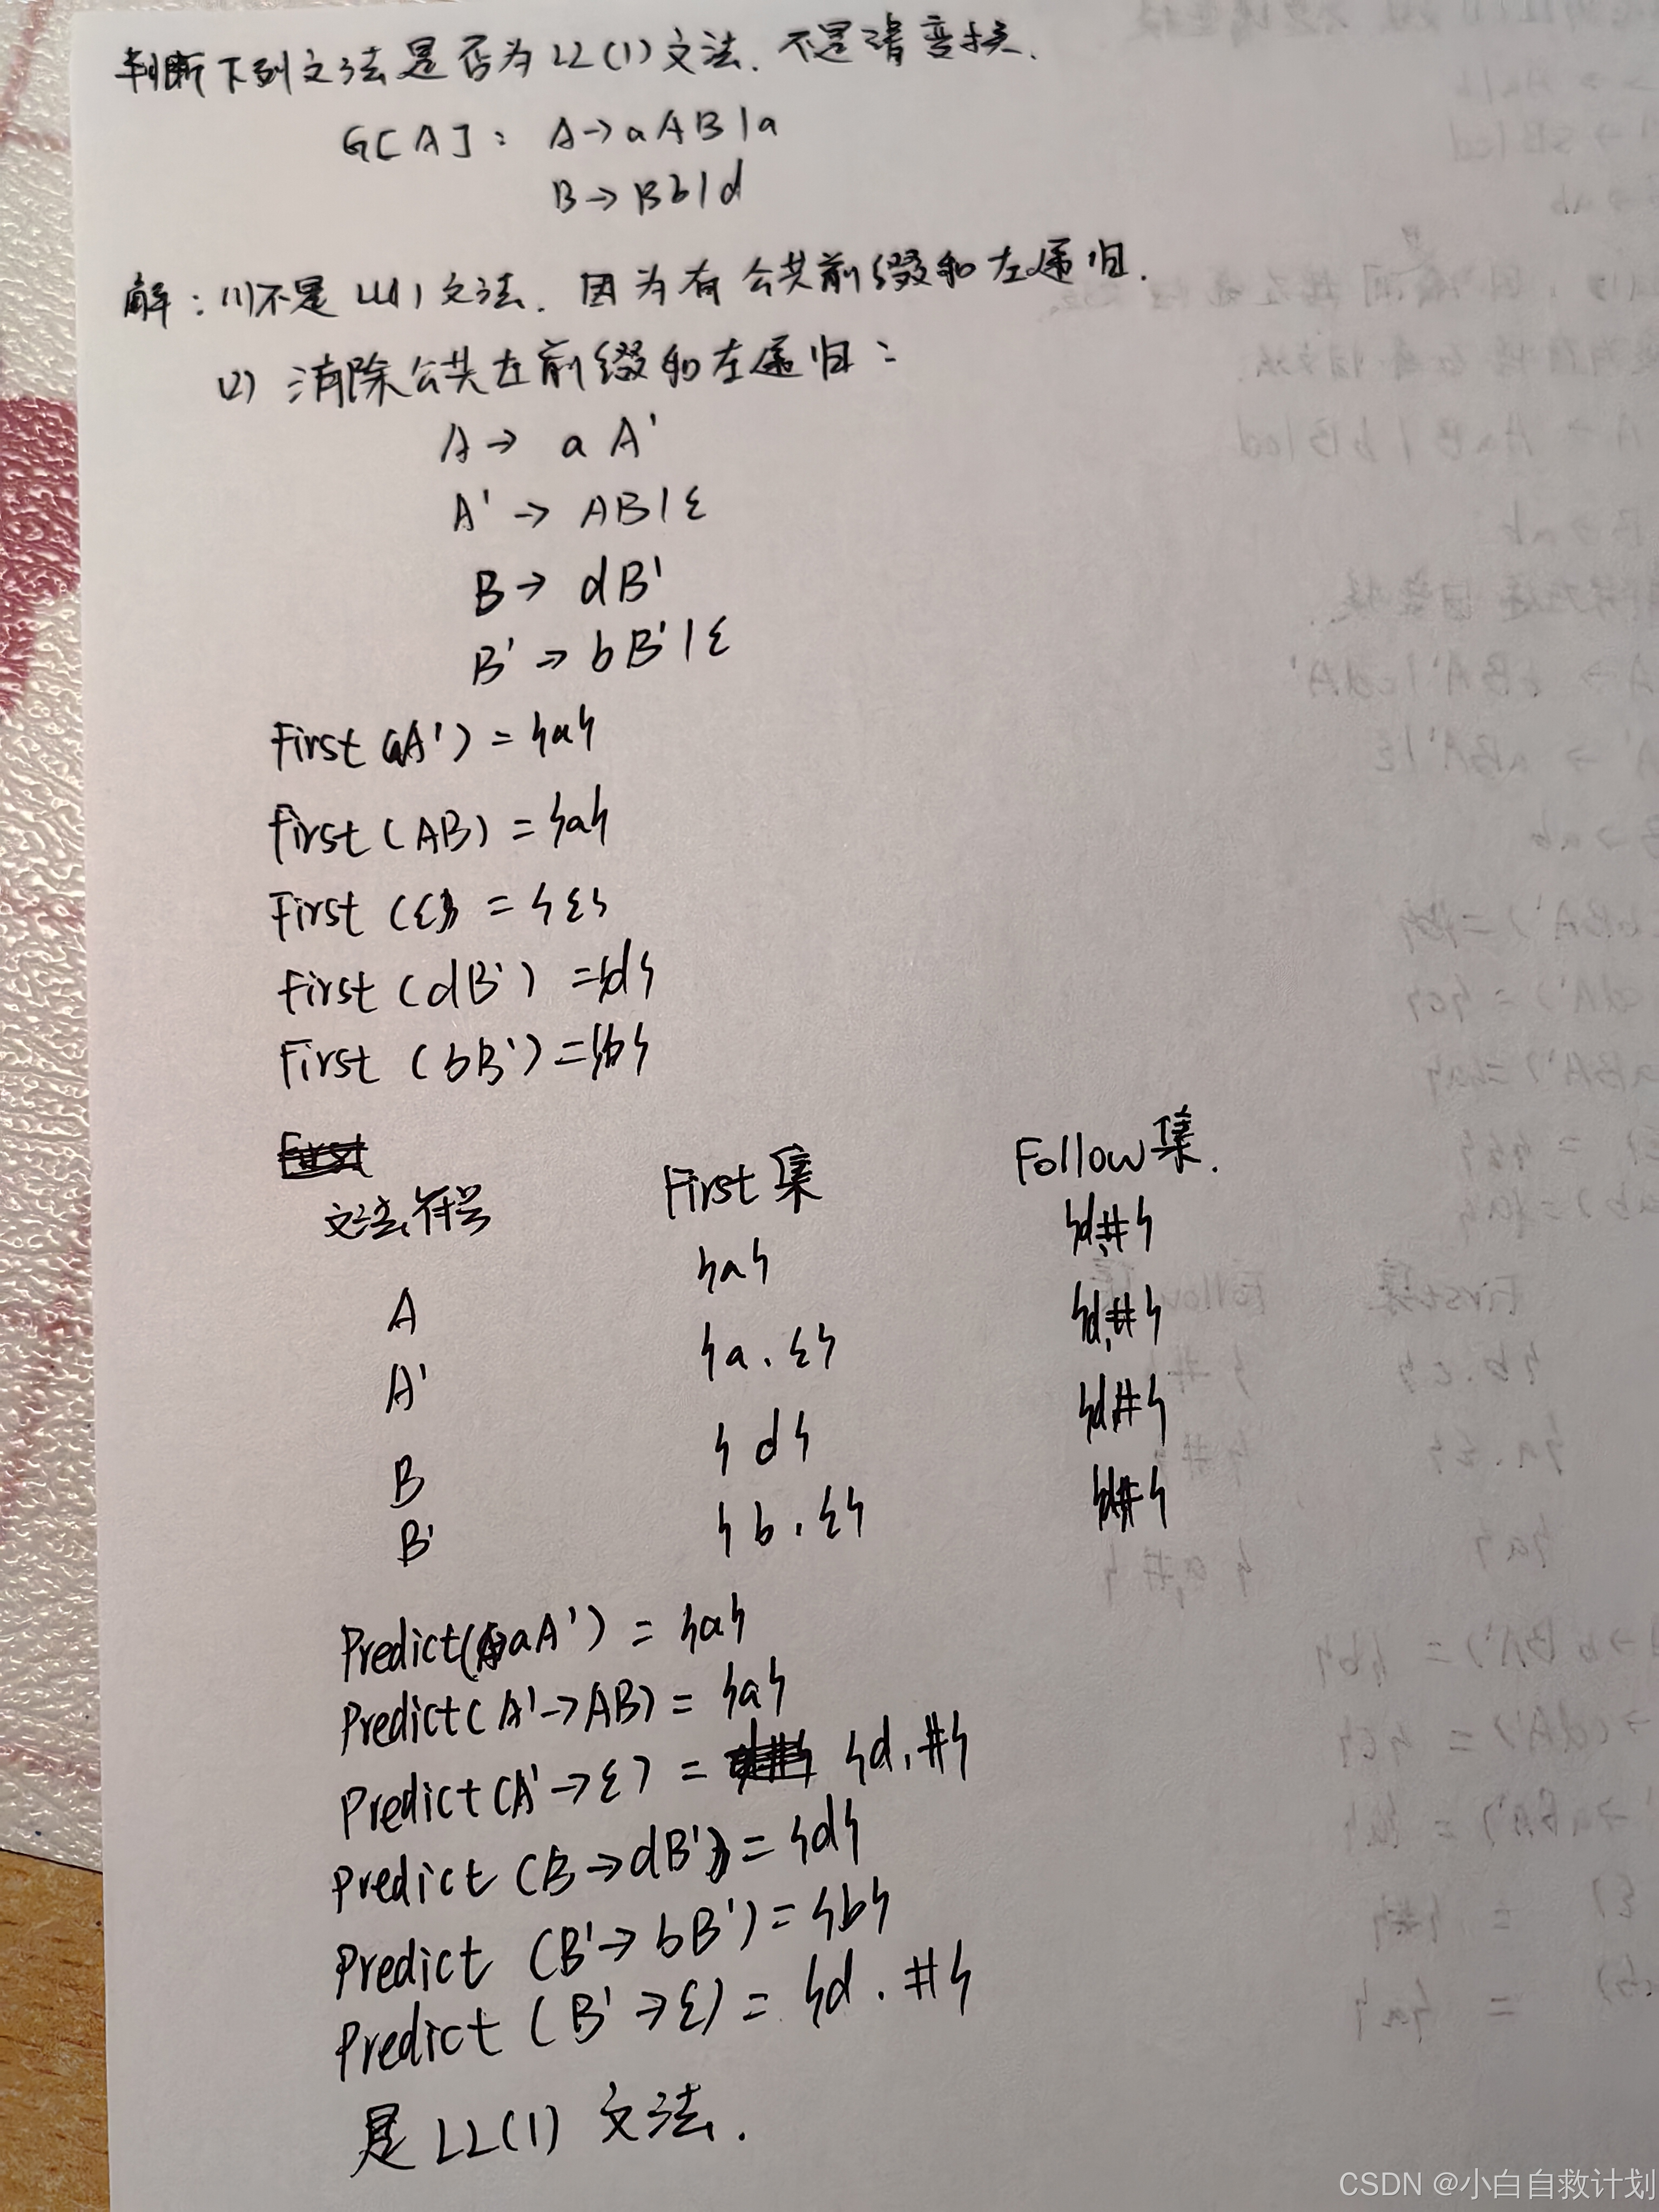 判断下列文法是否为LL(1)文法.不是请变换.
G[A]: A→aAB|a
B→Bb|d
解:(1)不是LL(1)文法.因为有公共前缀和左递归.
(2) 消除公共左前缀和左递归:
A→ aA'
A'→ AB|ε
B→ dB'
B'→ bB'|ε
First(aA') = {a}
First(AB) = {a}
First(ε) = {ε}
First(dB') = {d}
First(bB') = {b}
文法符号 First集 Follow集.
A {a} {d,#}
A' {a.ε} {d,#}
B {d} {d,#}
B' {b.ε} {d,#}
Predict(A→aA') = {a}
Predict(A'→AB) = {a}
Predict(A'→ε) = {d.#}
Predict(B→dB') = {d}
Predict(B'→bB') = {b}
Predict(B'→ε) = {d.#}
是LL(1)文法.
CSDN @小白自救计划